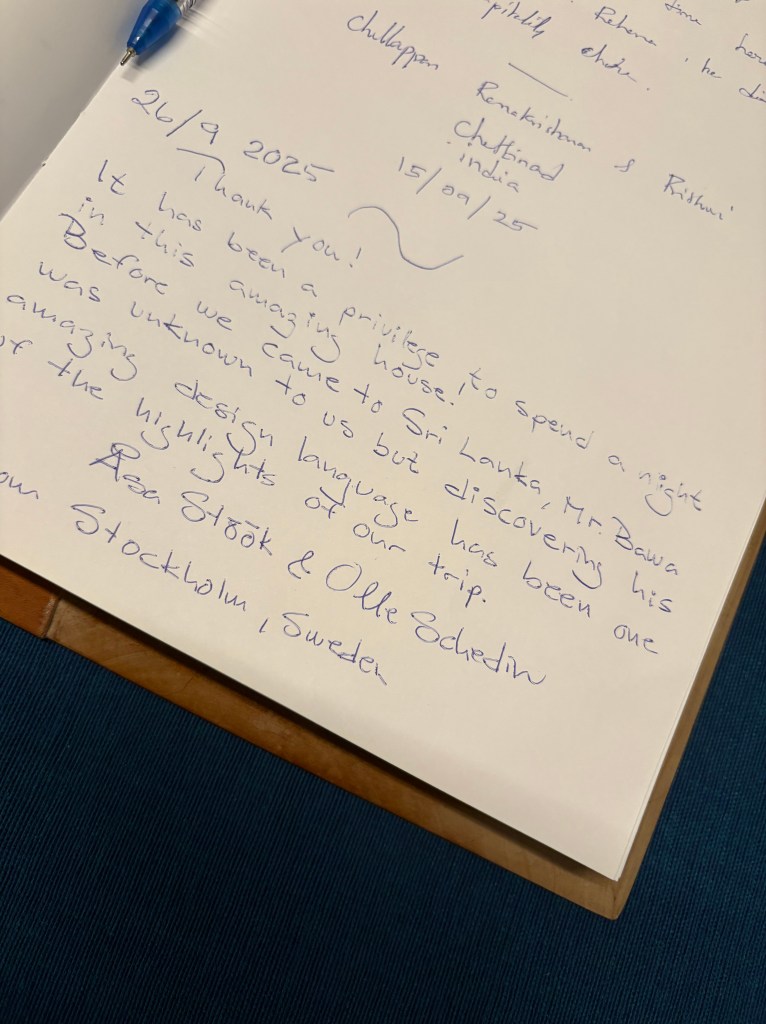 time here
Rehana, he
chullappan
Ramakrishnan & Rishmi
Chettinad
india
15/09/25
26/9 2025
Thank you!
It has been a privilege to spend a night
in this amazing house.
Before we came to Sri Lanka, Mr. Bawa
was unknown to us but discovering his
amazing design language has been one
of the highlights of our trip.
Åsa Stöök & Olle Schedin
Stockholm, Sweden